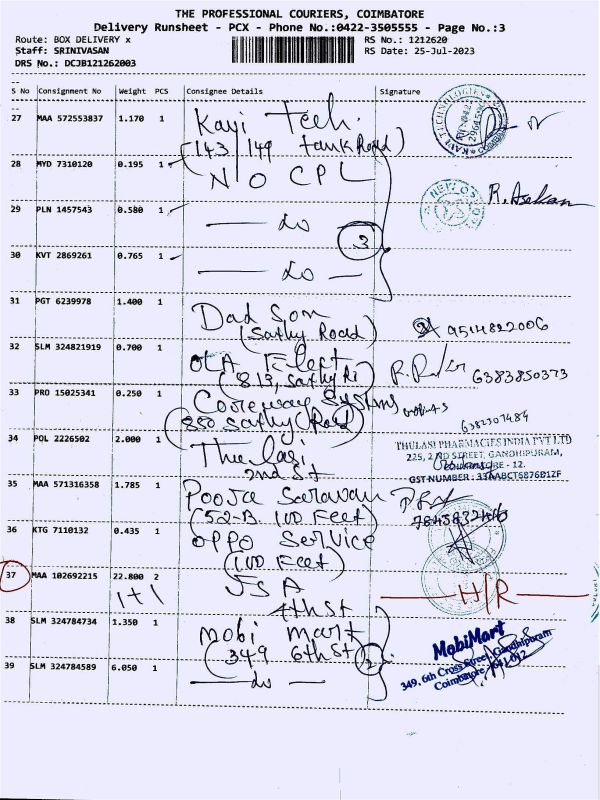 THE PROFESSIONAL COURIERS, COIMBATORE
Delivery Runsheet - PCX - Phone No.:0422-3505555 - Page No.:3
Route: BOX DELIVERY x
RS No.: 1212620
Staff: SRINIVASAN
RS Date: 25-Jul-2023
DRS No.: DCJB121262003
S No Consignment No Weight PCS Consignee Details Signature
27 MAA 572553837 1.170 1 Kavi Tech.
(143/149 tank Road)
28 MYD 7310120 0.195 1 N/O CPL
R. Asekan
29 PLN 1457543 0.580 1 — do
3
30 KVT 2869261 0.765 1 — do —
31 PGT 6239978 1.400 1 Dad Son
(Sathy Road)
9514822006
32 SLM 324821919 0.700 1 OLA Elect
(813, Sathy Rd)
6383850373
33 PRO 15025341 0.250 1 Coreway Systems
(880 Sathy Road)
6382307484
34 POL 2226502 2.000 1 Thulasi
2nd St
THULASI PHARMACIES INDIA PVT LTD
225, 2ND STREET, GANDHIPURAM,
COIMBATORE - 12.
GST NUMBER : 33AABCT6876B1ZF
35 MAA 571316358 1.785 1 Pooja Saravan
(52-B. 100 Feet)
36 KTG 7110132 0.435 1 OPPO Service
(100 Feet)
37 MAA 102692215 22.800 2 JSA
1+1
4th St
H/R
38 SLM 324784734 1.350 1 Mobi Mart
(349 6th St)
2
MobiMart
349, 6th Cross Street, Gandhipuram
Coimbatore - 641 012
39 SLM 324784589 6.050 1 — do —